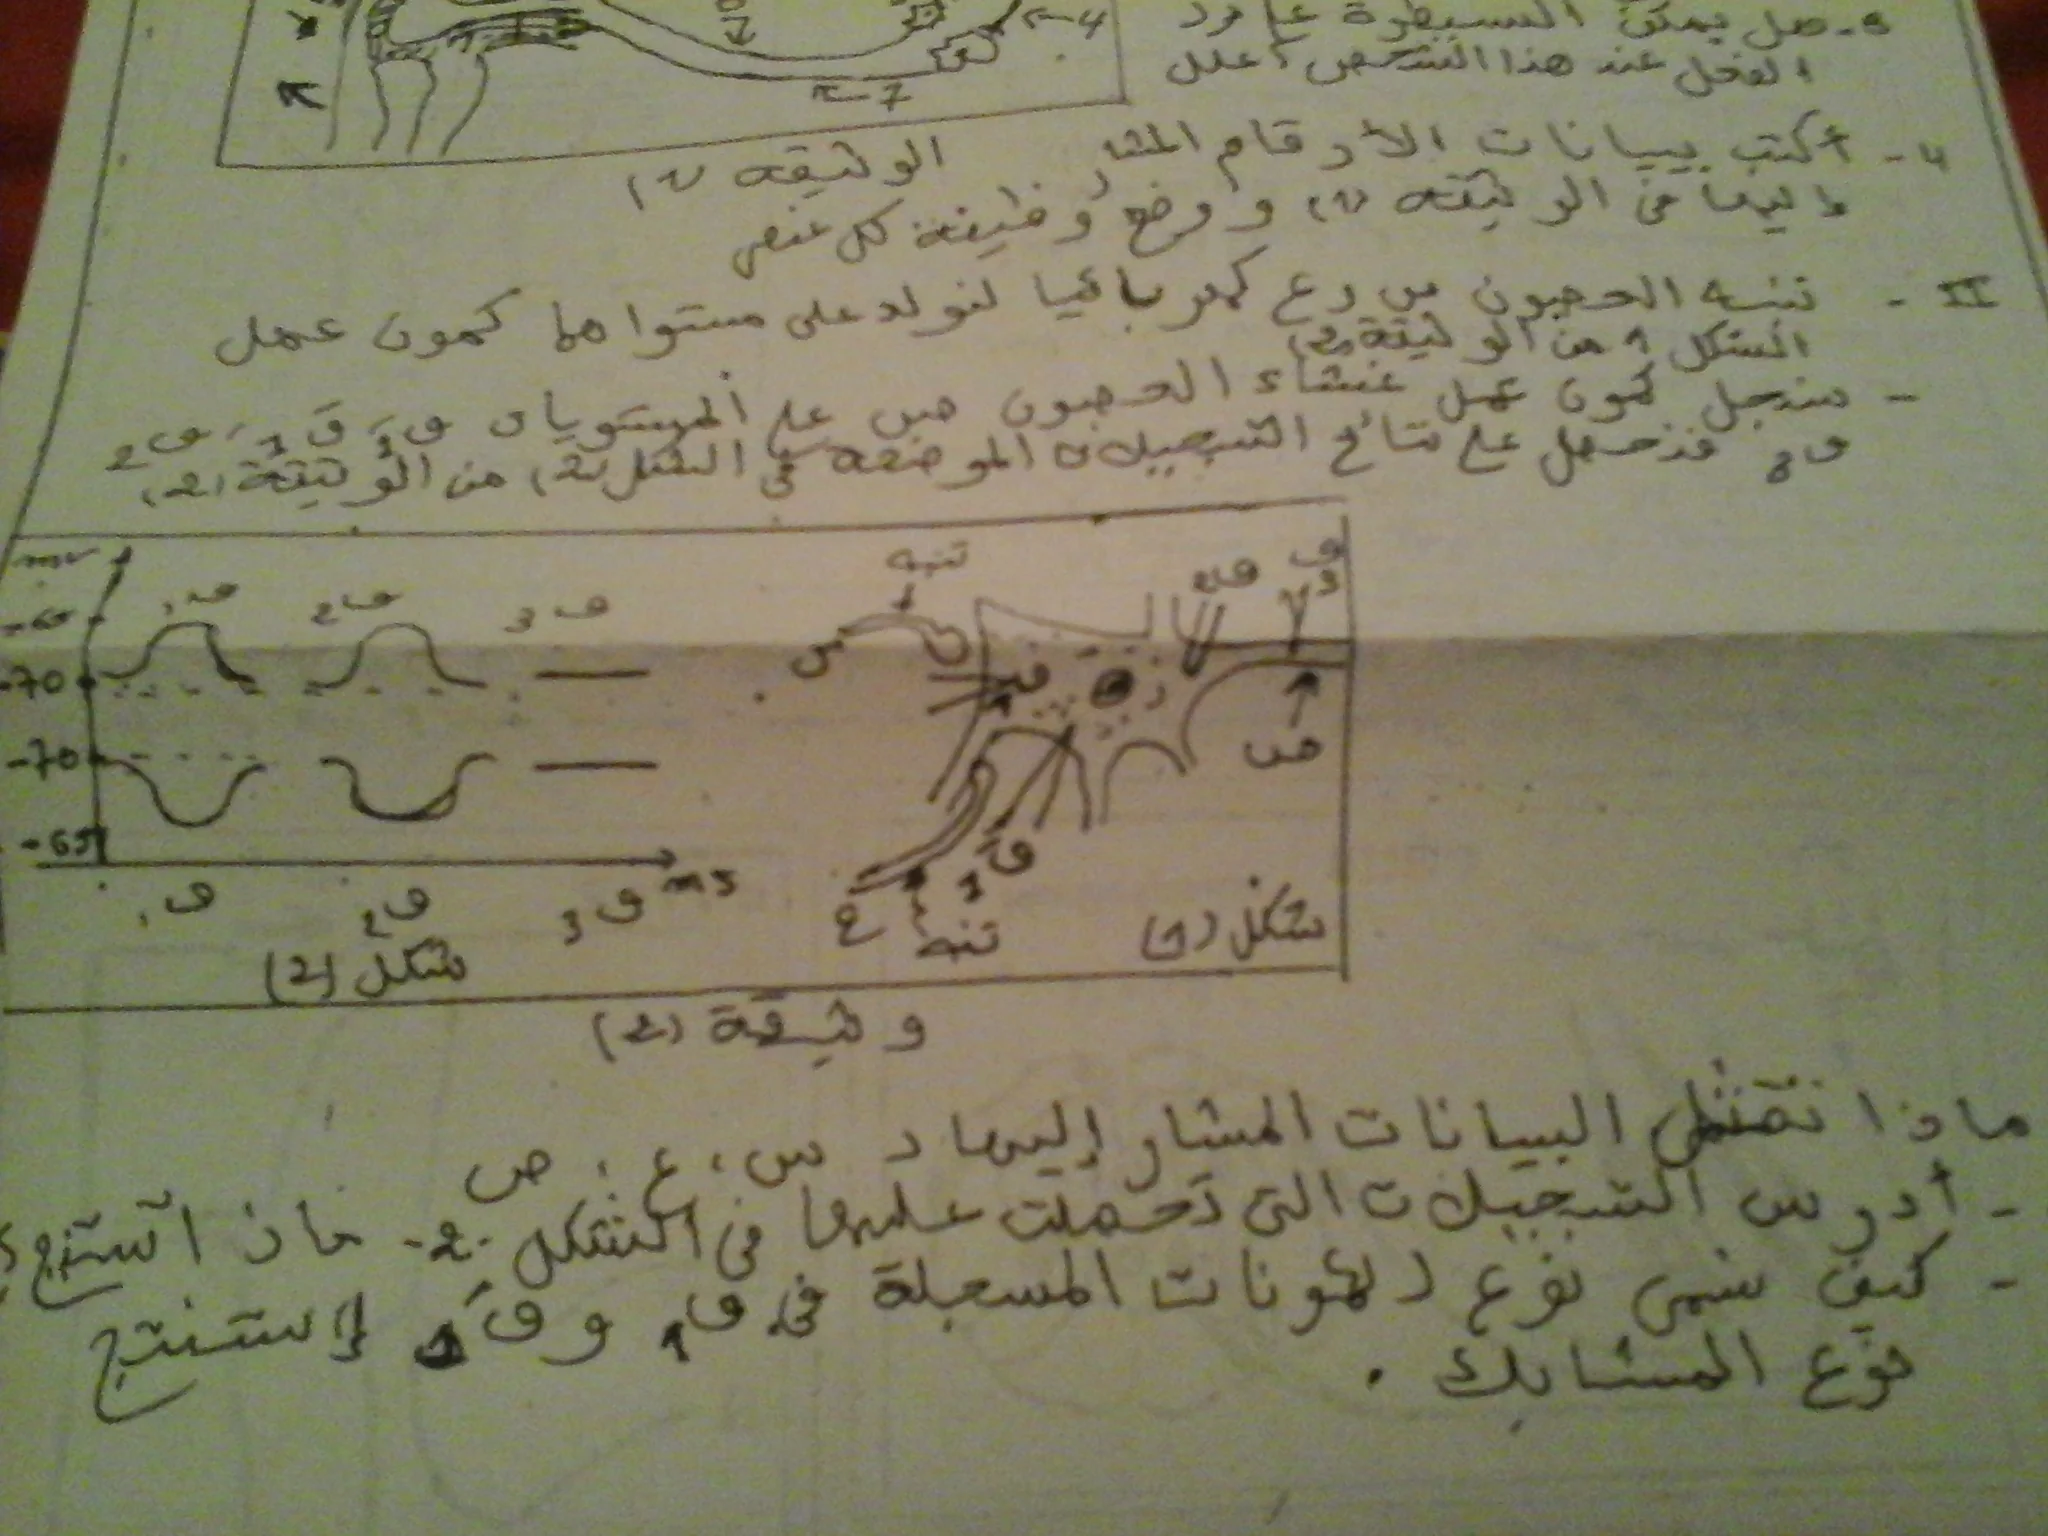 5 - هل يمكن السيطرة على رد
الفعل عند هذا الشخص؟ علل
4
7
الوثيقة (1)
4 - أكتب بيانات الأرقام المشار
إليها في الوثيقة (1) ووضح وظيفة كل عنصر
II - ننبه العصبون س وع كهربائيا لنولد على مستواهما كمون عمل
الشكل 1 من الوثيقة (2)
- نسجل كمون عمل غشاء العصبون ص على المستويات ق1، قَ1، ق2
ق3 فنحصل على نتائج التسجيلات الموضحة في الشكل (2) من الوثيقة (2)
mv
-65
ق1 ق2 ق3
-70
-70
-65
ms
ق1 ق2 ق3
شكل (2)
تنبيه
ق2 ق3
س
ق1
ص
قَ1
ع
تنبيه
شكل (1)
وثيقة (2)
ماذا تمثل البيانات المشار إليها د س، ع، ص
- أدرس التسجيلات التي تحصلت عليها في الشكل -2- ماذا تستنتج؟
- كيف نسمي نوع الكمونات المسجلة في ق1 و قَ1 إستنتج
نوع المشابك.